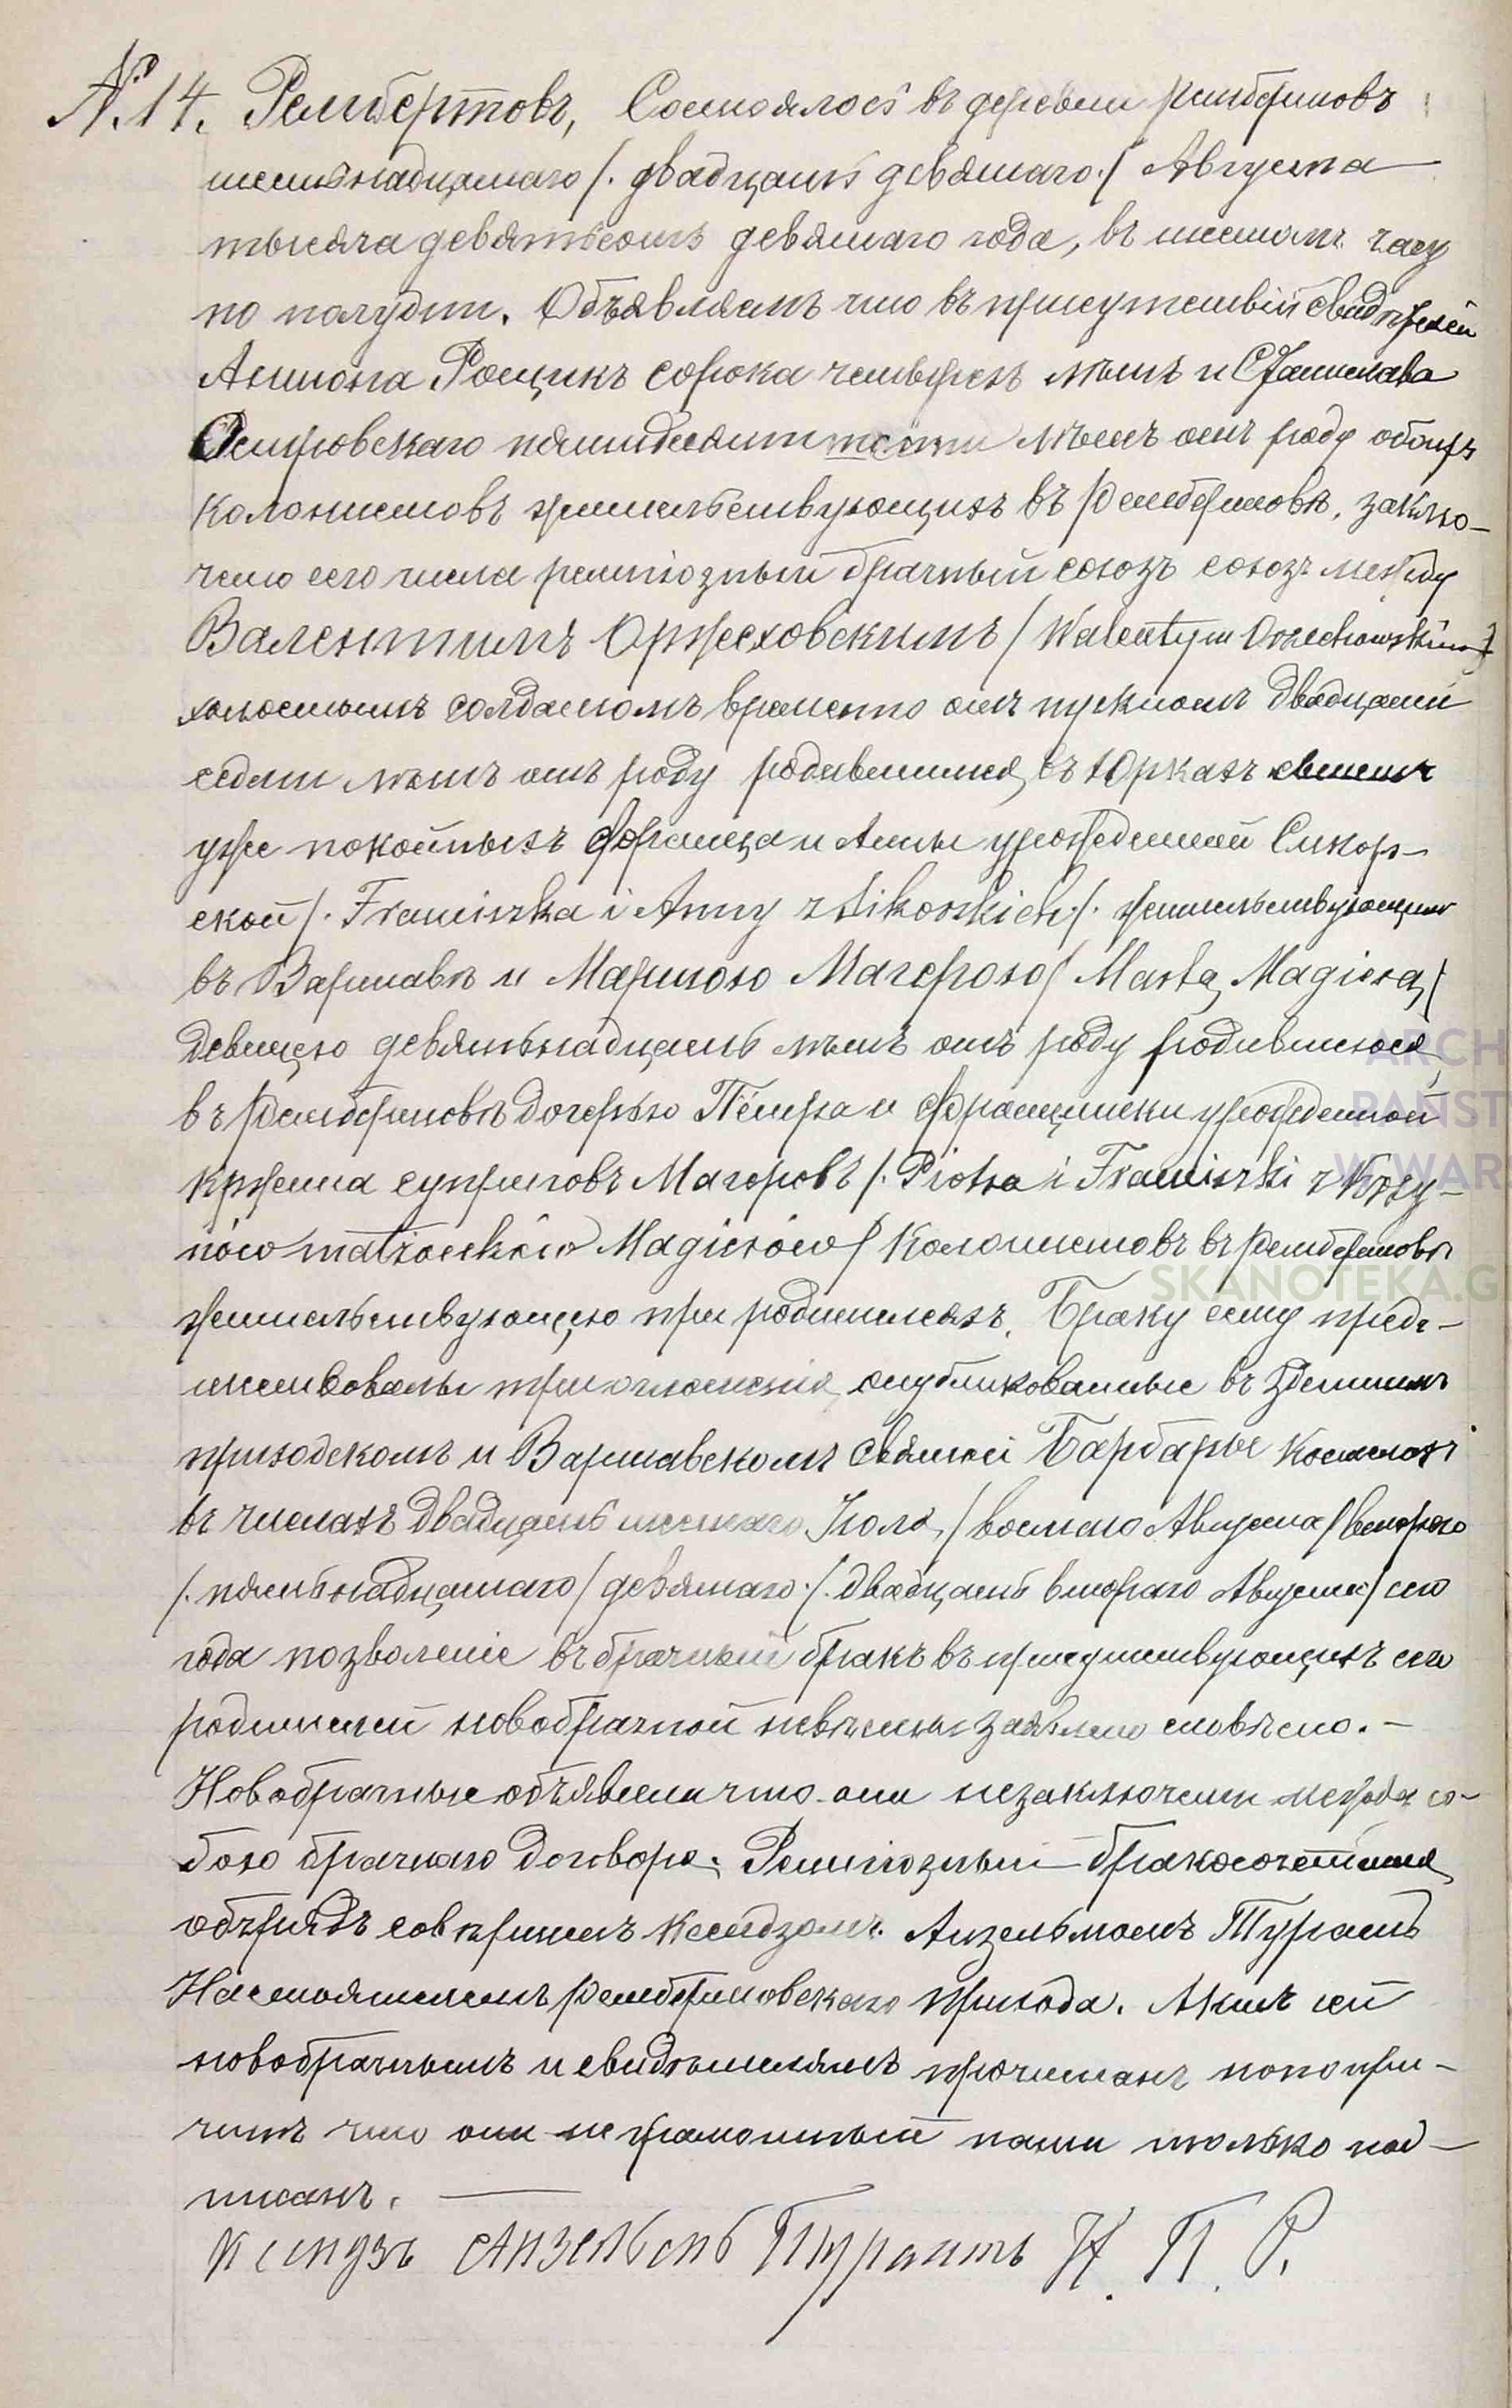 № 14. Рембертовъ, Состоялось въ деревни Рембертовъ
шестьнадцатаго /. двадцать девятаго./ Августа
тысяча девятьсотъ девятаго года, въ шестомъ часу
по полудни. Объявляемъ что въ присутствіи свидѣтелей
Антона Рощикъ сорока четырехъ лѣтъ и Станислава
Островскаго пятидесяти лѣтъ отъ роду обоихъ
колонистовъ жительствующихъ въ Рембертовѣ, заклю-
чено сего числа религіозный брачный союзъ союзъ между
Валентимъ Оржеховскимъ / Walentym Orzechowskim /
холостымъ солдатомъ временно отпускномъ двадцати
седми лѣтъ отъ роду родившимся въ Юркахъ сыномъ
уже покойныхъ Франца и Анны урожденной Сикор-
ской /. Franciszka i Anny z Sikorskich./. жительствующимъ
въ Варшавѣ и Мартою Магерою / Martą Magierą /
девицею девятьнадцать лѣтъ отъ роду родившеюся
въ Рембертовѣ дочерью Пётра и Францишки урожденной
Кржена супруговъ Магеровъ /. Piotra i Franciszki z Krzy-
nów małżonków Magierów / Колонистовъ въ Рембертовѣ
жительствующею при родителяхъ. Браку сему пред-
шествовалы три оглашенія опубликованные въ здешнемъ
приходскомъ и Варшавскомъ Святой Барбары костелахъ
въ числахъ двадцать шестаго Іюля / восмого Августа / второго
/. пятьнадцатаго / девятаго ./. двадцать втораго Августа / сего
года позволеніе въ брачный бракъ въ присутствующихъ сего
родителей новобрачной невѣсты заявлено словѣсно. –
Новобрачные объявели что они незаключели между со-
бою брачнаго договора. Религіозный бракосочетанія
обрядъ совершенъ Ксендзомъ Анзельмомъ Турантъ
Настоятелемъ Рембертовскаго прихода. Актъ сей
новобрачнымъ и свидѣтелямъ прочитанъ по при-
чинѣ что они неграмотный нами только под-
писанъ.
Ксендзъ Анзельмъ Турантъ Н. П. Р.
ARCH
PAŃST
W WAR
SKANOTEKA.G